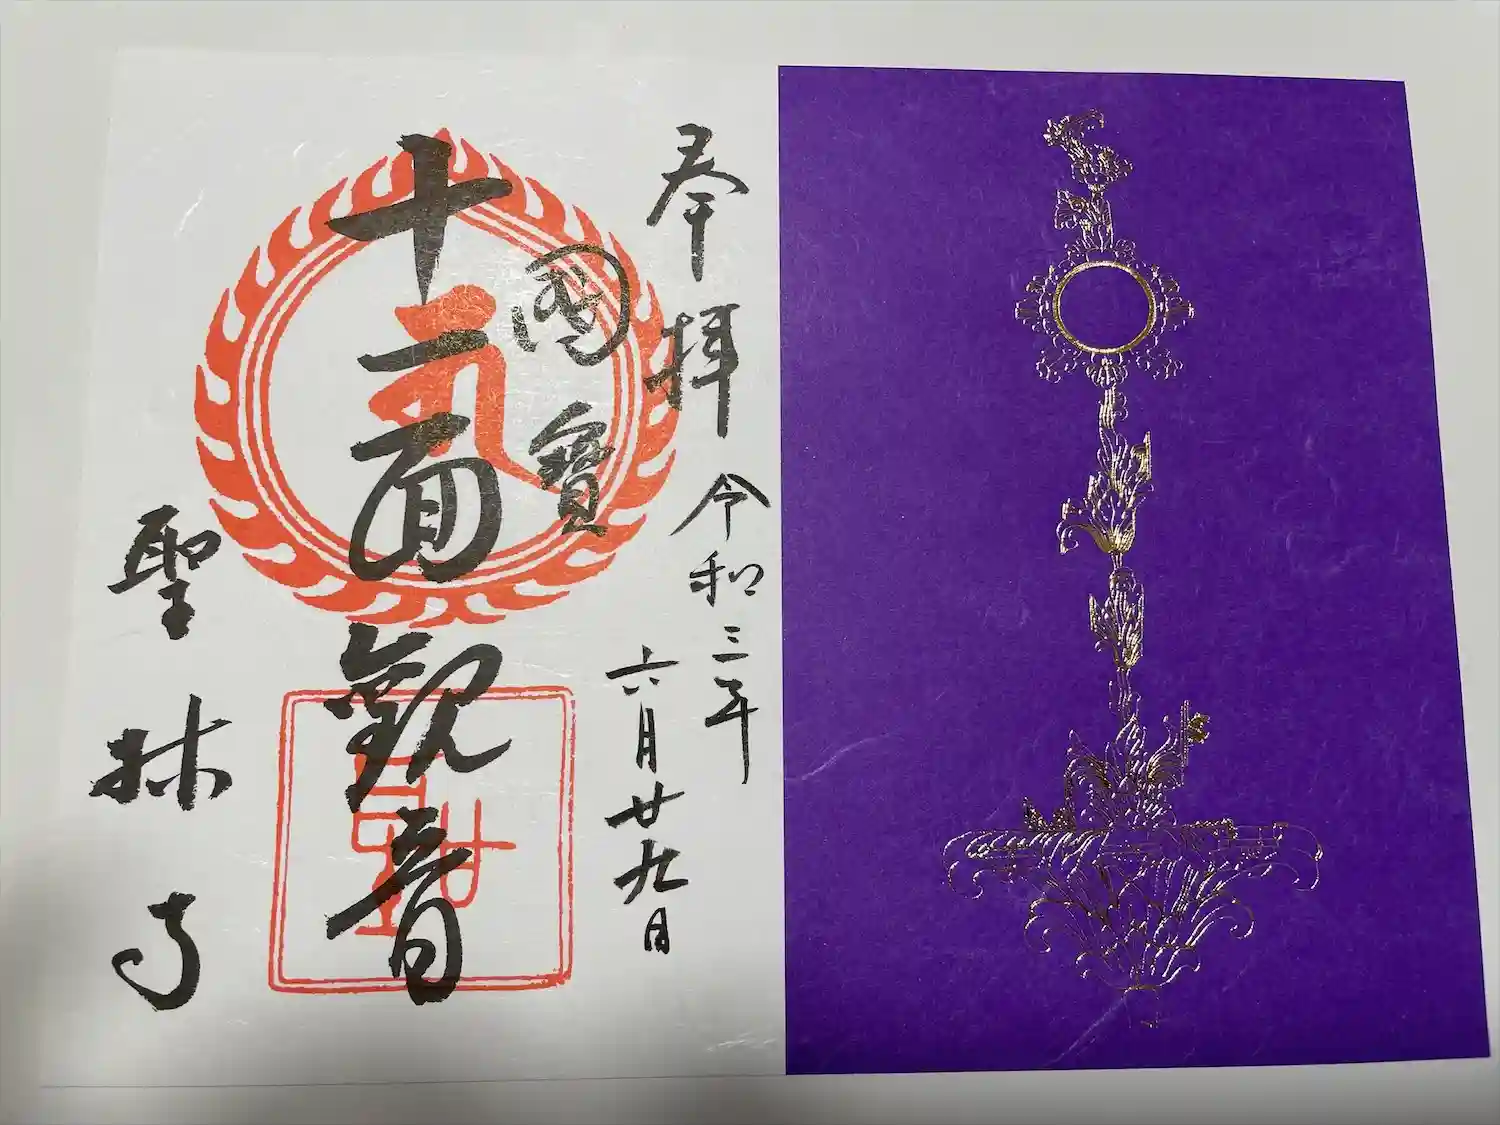 奉拝
令和三年
六月廿九日
國寶
十一面観音
聖林寺